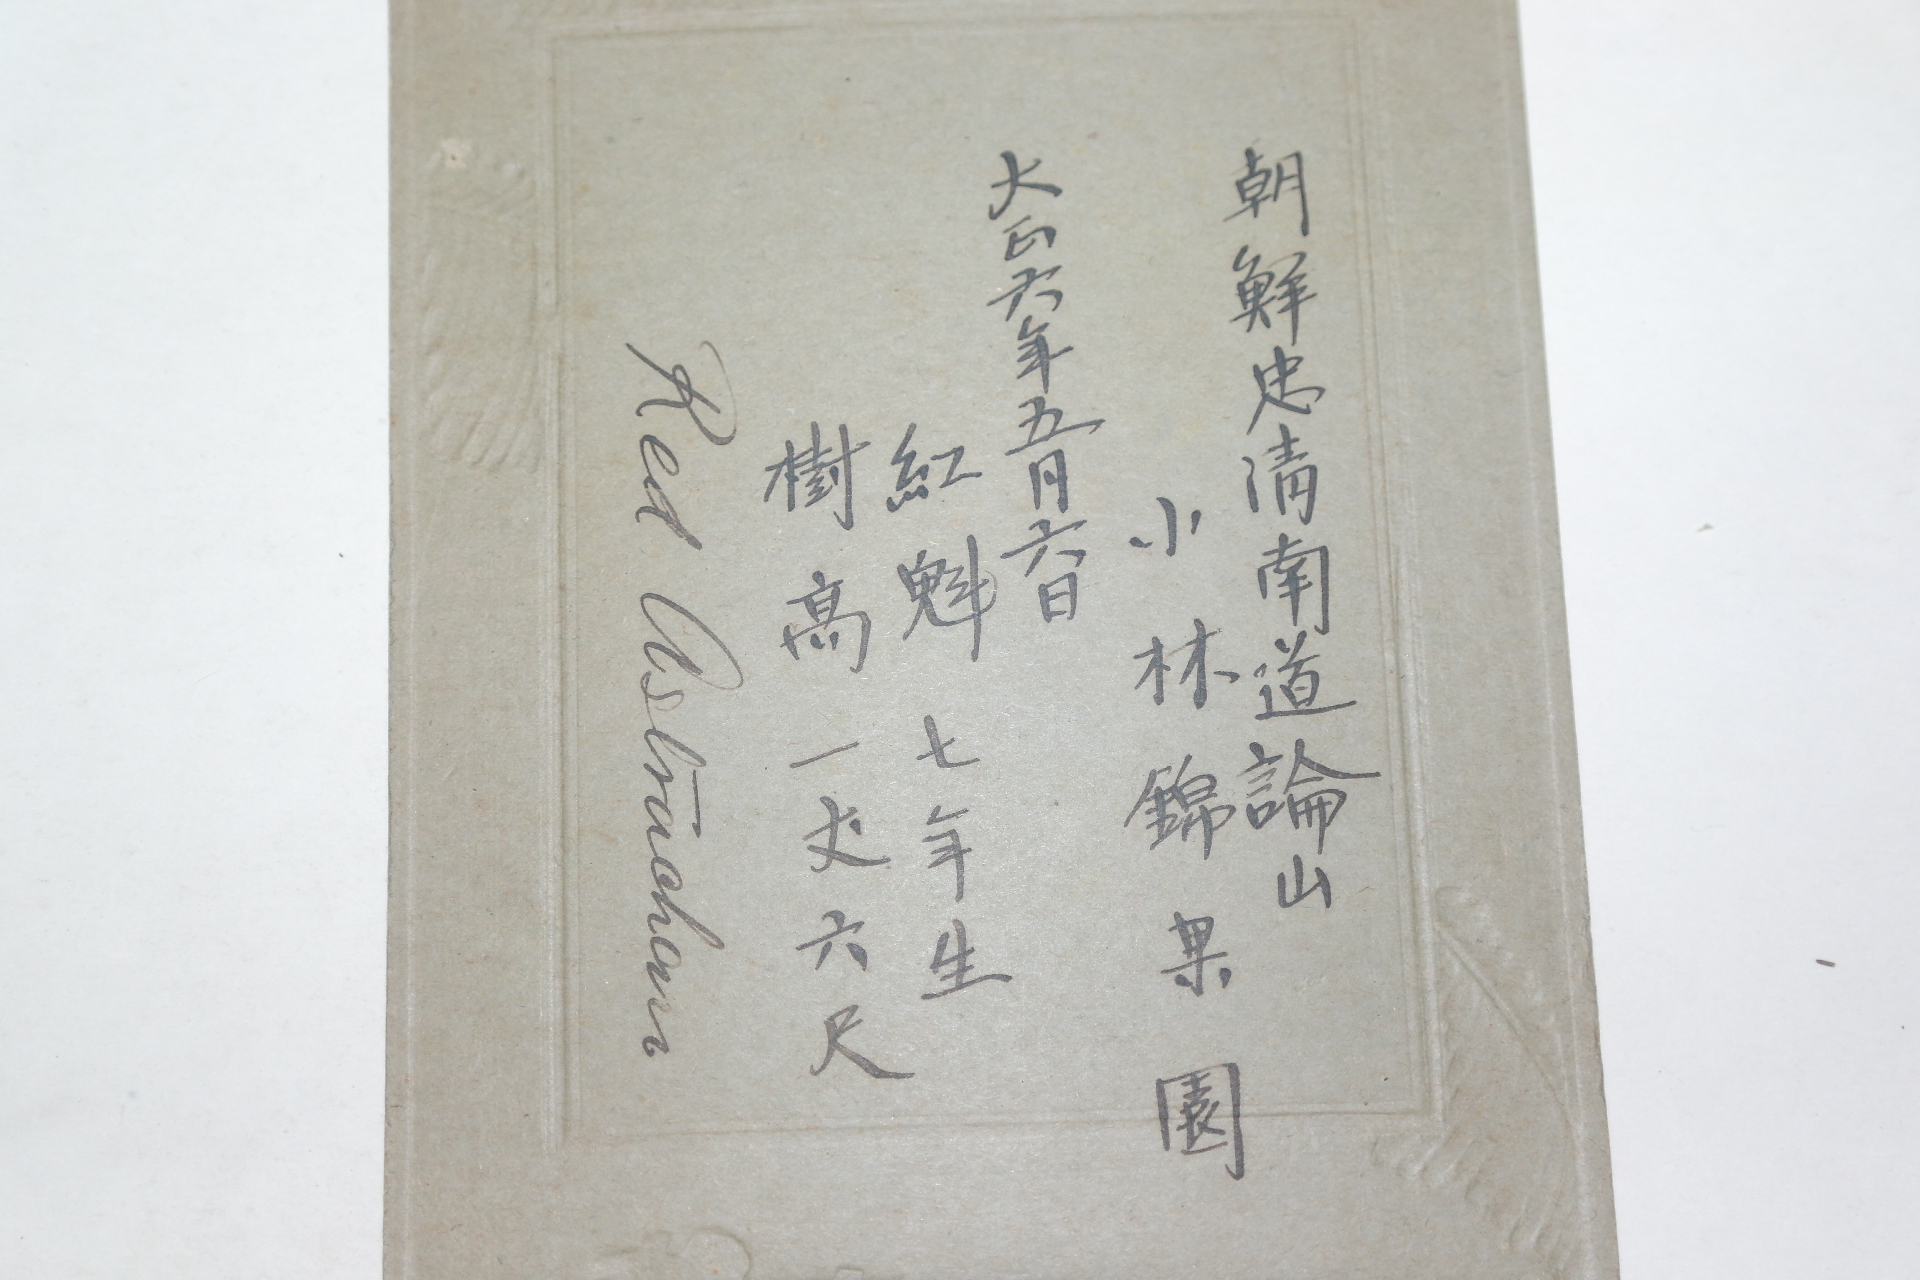 朝鮮忠清南道論山
小林錦果園
大正六年五月六日
紅魁 七年生
樹高一丈六尺
Red Astrachan